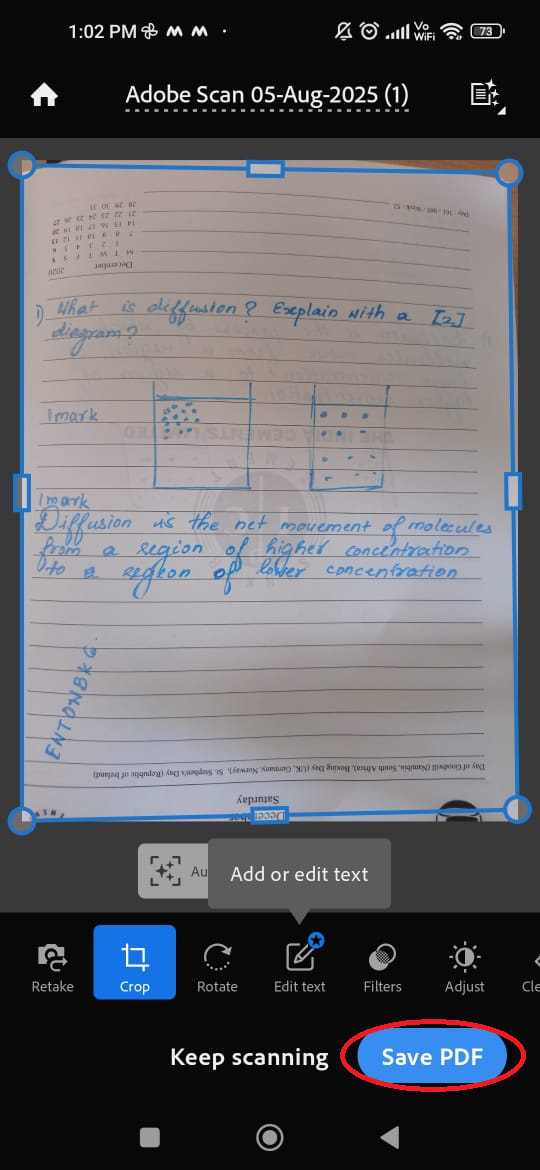 1:02 PM
Vo
WiFi
73
Adobe Scan 05-Aug-2025 (1)
Day : 361 - 005 / Week : 52
December 2020
M T W T F S S
1 2 3 4 5 6
7 8 9 10 11 12 13
14 15 16 17 18 19 20
21 22 23 24 25 26 27
28 29 30 31
1) What is deffusion? Explain with a [2]
diagram?
1mark
THE INDIA CEMENTS LIMITED
1mark
Diffusion is the net movement of molecules
from a region of higher concentration
to a region of lower concentration
ENTONBKG.
Day of Goodwill (Namibia, South Africa), Boxing Day (UK, Germany, Norway), St. Stephen's Day (Republic of Ireland)
Saturday
December
Au
Add or edit text
Retake
Crop
Rotate
Edit text
Filters
Adjust
Cle
Keep scanning
Save PDF